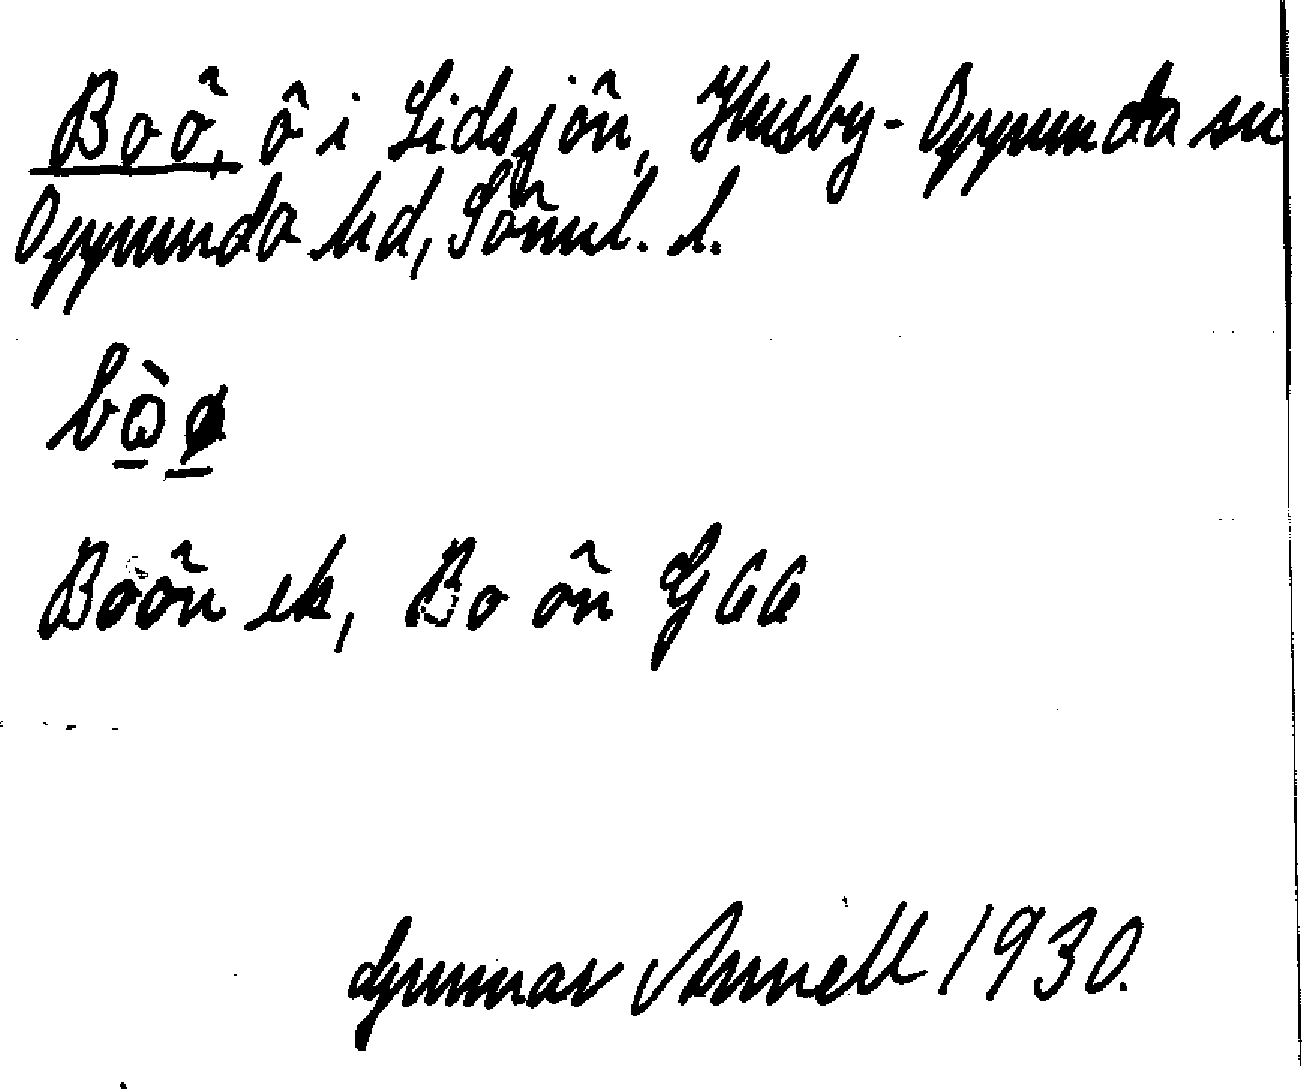 Boö, ö i Lidsjön, Husby-Oppunda sn
Oppunda hd, Sörml. l.
Boön ek, Bo ön G 66
Gunnar Arnell 1930.